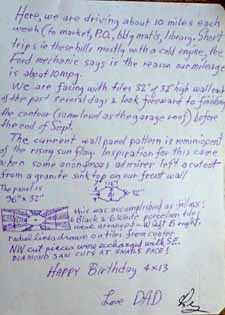 Here, we are driving about 10 miles each
week (to market, P.O., bldg matls, library. Short
trips in these hills mostly with a cold engine, the
Ford mechanic says is the reason our mileage
is about 10 mpg.
We are facing with tiles 52" of 32" high wall
of the past several days & look forward to finishing
the contour (same level as the garage roof) before
the end of Sept.
The current wall panel pattern is reminiscent
of the rising sun flag. Inspiration for this came
when some anonymous admirer left a cutoff
from a granite sink top on our front wall
The panel is
96" x 32"
32"
this was accomplished as follows:
6 Black & 6 White porcelain tile
were arranged - W left B right.
radial lines drawn on tiles from center.
NW cut pieces were exchanged with SE.
DIAMOND SAW CUTS AT SNAILS PACE!
HAPPY Birthday 4x13
Love DAD